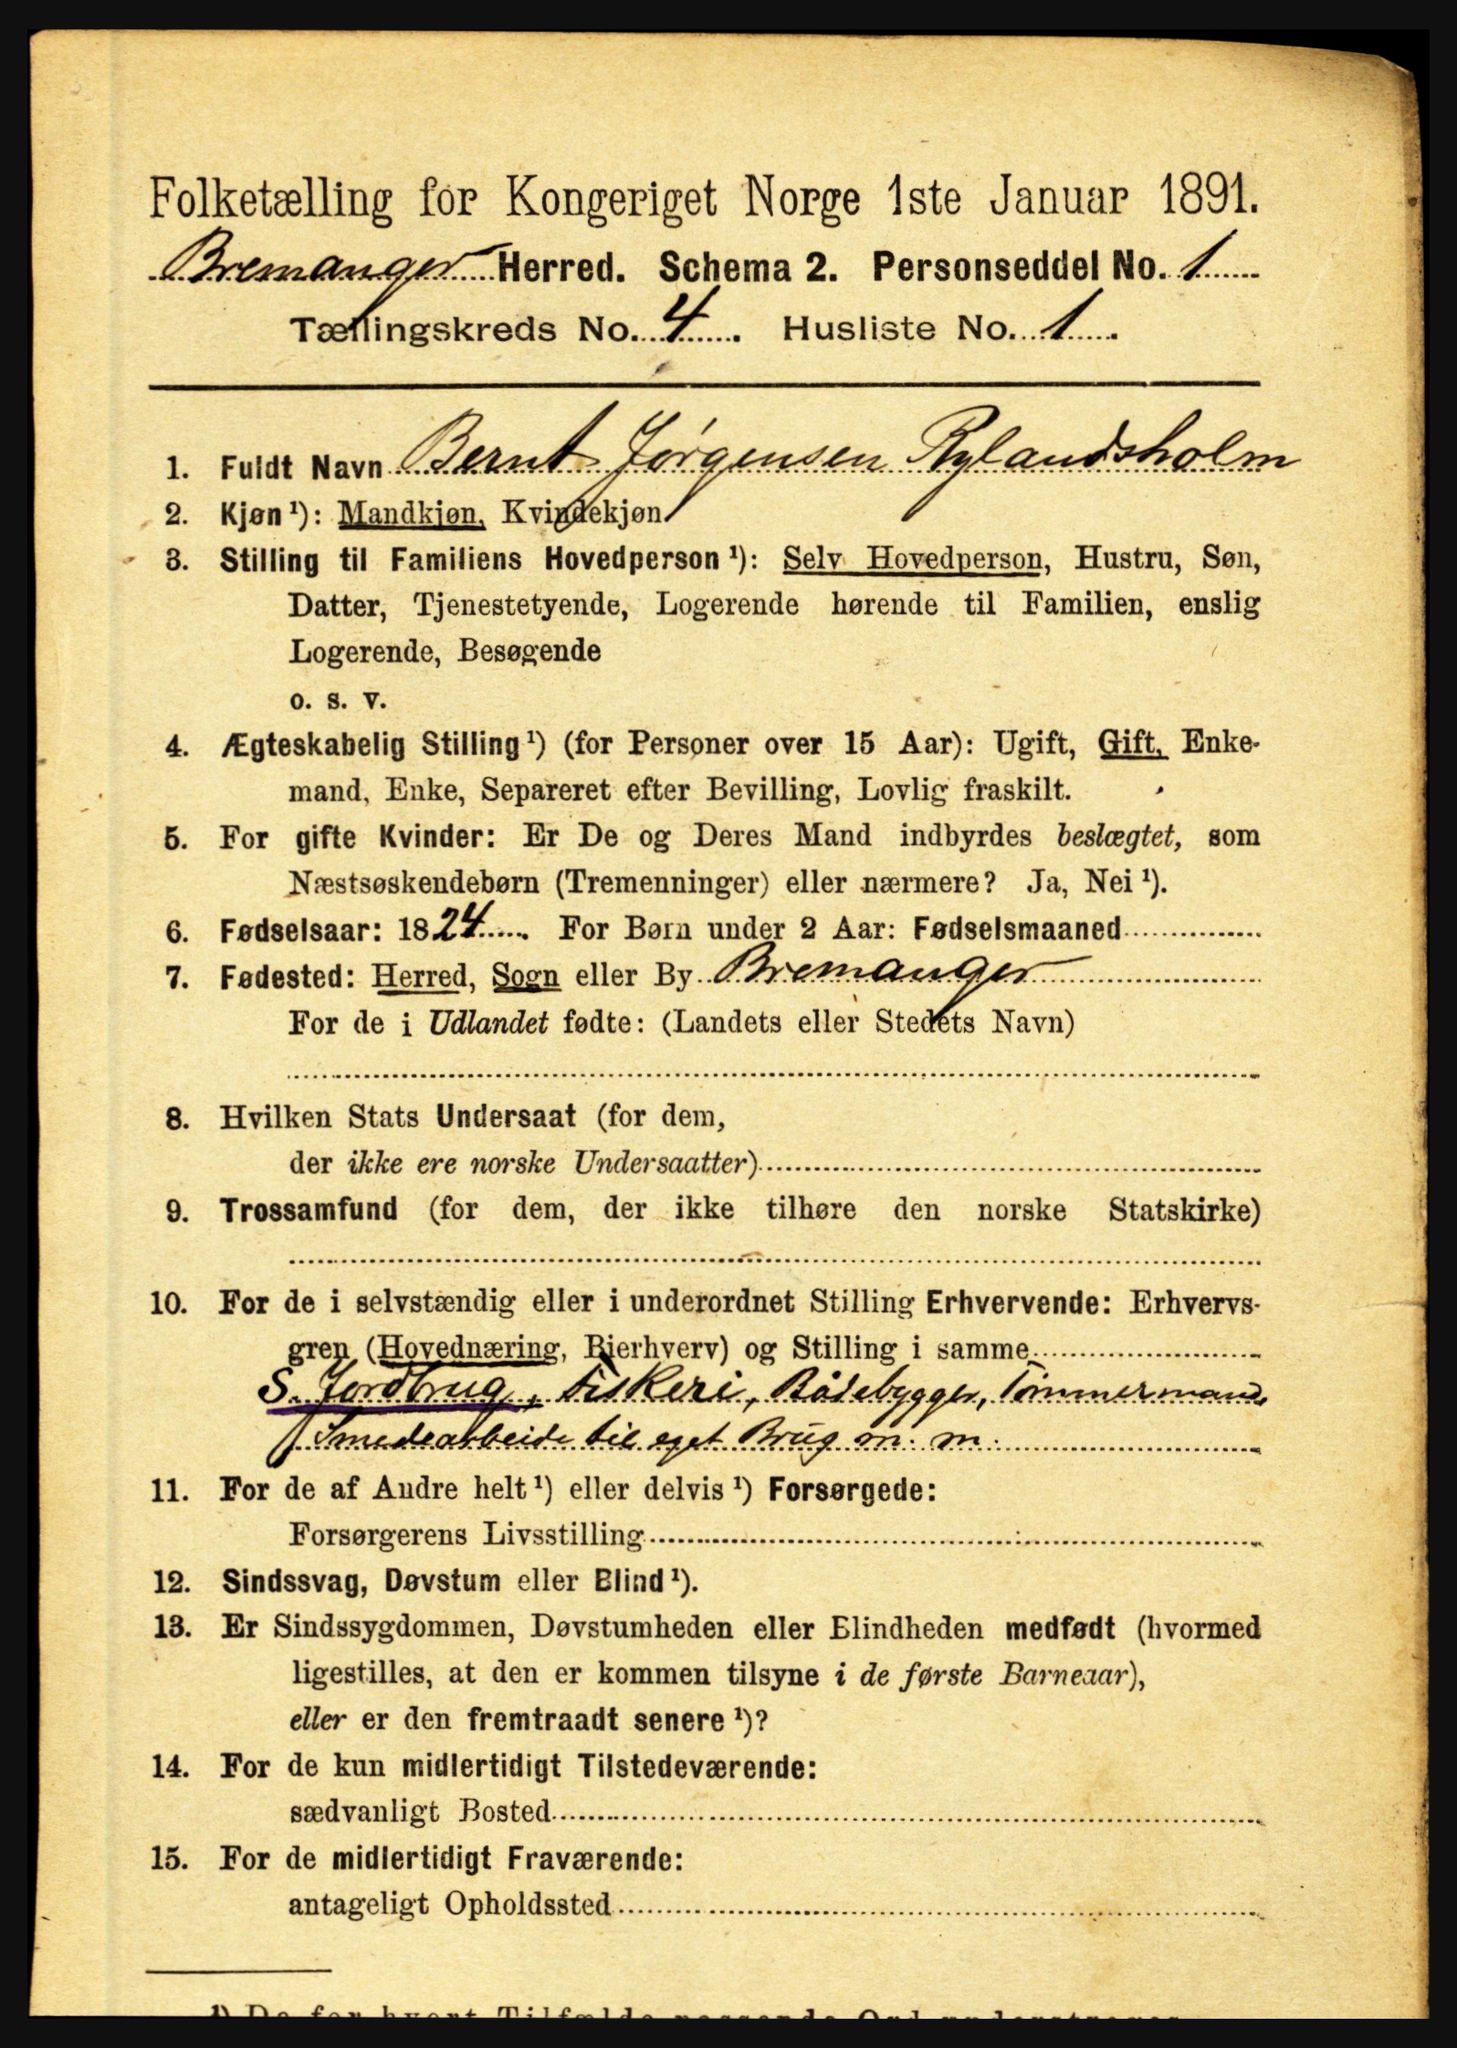 Folketælling for Kongeriget Norge 1ste Januar 1891.
Bremanger Herred. Schema 2. Personseddel No. 1
Tællingskreds No. 4. Husliste No. 1.
1. Fuldt Navn Bernt Jørgensen Rylandsholm
2. Kjøn ¹): Mandkjøn, Kvindekjøn.
3. Stilling til Familiens Hovedperson ¹): Selv Hovedperson, Hustru, Søn,
Datter, Tjenestetyende, Logerende hørende til Familien, enslig
Logerende, Besøgende
o. s. v.
4. Ægteskabelig Stilling ¹) (for Personer over 15 Aar): Ugift, Gift, Enke-
mand, Enke, Separeret efter Bevilling, Lovlig fraskilt.
5. For gifte Kvinder: Er De og Deres Mand indbyrdes beslægtet, som
Næstsøskendebørn (Tremenninger) eller nærmere? Ja, Nei ¹).
6. Fødselsaar: 1824. For Børn under 2 Aar: Fødselsmaaned
7. Fødested: Herred, Sogn eller By Bremanger
For de i Udlandet fødte: (Landets eller Stedets Navn)
8. Hvilken Stats Undersaat (for dem,
der ikke ere norske Undersaatter)
9. Trossamfund (for dem, der ikke tilhøre den norske Statskirke)
10. For de i selvstændig eller i underordnet Stilling Erhvervende: Erhvervs-
gren (Hovednæring, Bierhverv) og Stilling i samme
S. Jordbrug, Fiskeri, Bådebygger, Tømmermand,
Smedearbeide til eget Brug m. m.
11. For de af Andre helt ¹) eller delvis ¹) Forsørgede:
Forsørgerens Livsstilling
12. Sindssvag, Døvstum eller Blind ¹).
13. Er Sindssygdommen, Døvstumheden eller Blindheden medfødt (hvormed
ligestilles, at den er kommen tilsyne i de første Barneaar),
eller er den fremtraadt senere ¹)?
14. For de kun midlertidigt Tilstedeværende:
sædvanligt Bosted
15. For de midlertidigt Fraværende:
antageligt Opholdssted
¹) De for hvert Tilfælde passende Ord understreges